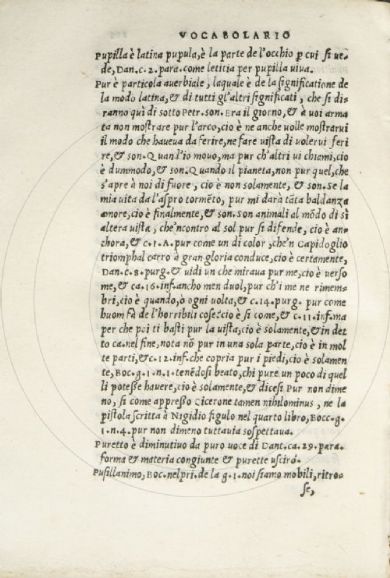 VOCABOLARIO
Pupilla è latina pupula, è la parte de l'occhio p cui si ue-
de, Dan. c. 2. para. come leticia per pupilla uiua.
Pur è particola auerbiale, laquale è de la significatione de
la modo latina, & di tutti gl'altri significati, che si dis
ranno quì di sotto Petr. son. Era il giorno, & à uoi arma
ta non mostrare pur l'arco, cio è ne anche uolle mostrarui
il modo che haueua da ferire, ne fare uista di uolerui feri
re, & son. Quand'io mouo, ma pur ch'altri ui chiami, cio
è dummodo, & son. Quando il pianeta, non pur quel, che
s'apre à noi di fuore, cio è non solamente, & son. Se la
mia uita da l'aspro tormẽto, pur mi darà tãta baldanza
amore, cio è finalmente, & son. Son animali al mõdo di sì
altera uista, che'ncontro al sol pur si difende, cio è an-
chora, & c. 1. A. pur come un di color, che'n Capidoglio
triomphal carro à gran gloria conduce, cio è certamente,
Dan. c. 8. purg. & uidi un che miraua pur me, cio è uerso
me, & ca. 16. inf. ancho men duol, pur ch'i me ne rimem-
bri, cio è quando, o ogni uolta, & c. 14. purg. pur come
huom fà de l'horribili cose: cio è si come, & c. 11. inf. ma
per che poi ti basti pur la uista, cio è solamente, & in det
to ca. nel fine, nota nõ pur in una sola parte, cio è in mol
te parti, & c. 12. inf. che copria pur i piedi, cio è solamen
te, Boc. g. 1. n. 1. tenẽdosi beato, chi pure un poco di quel
li potesse hauere, cio è solamente, & dicesi Pur non dime
no, si come appresso Cicerone tamen nihlominus, ne la
pistola scritta à Nigidio figulo nel quarto libro, Bocc. g.
1. n. 4. pur non dimeno tuttauia sospettaua.
Puretto è diminutiuo da puro uoce di Dant. ca. 29. para.
forma & materia congiunte & purette usciró.
Pusillanimo, Boc. nel pri. de la g. 1. noi siamo mobili, ritro-
se,